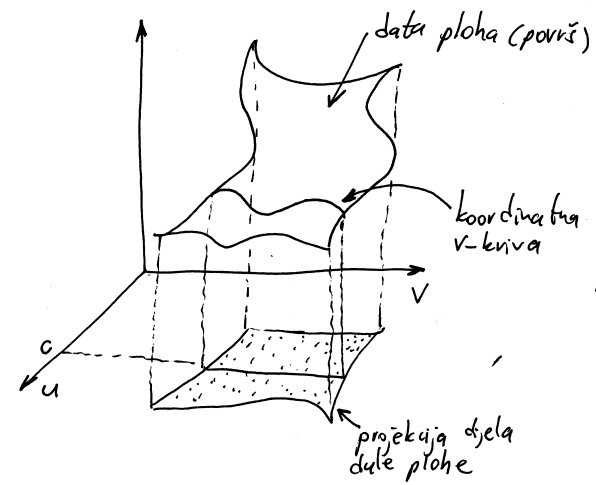 data ploha (površ)
koordinatna
v-kriva
V
c
u
projekcija dijela
date plohe